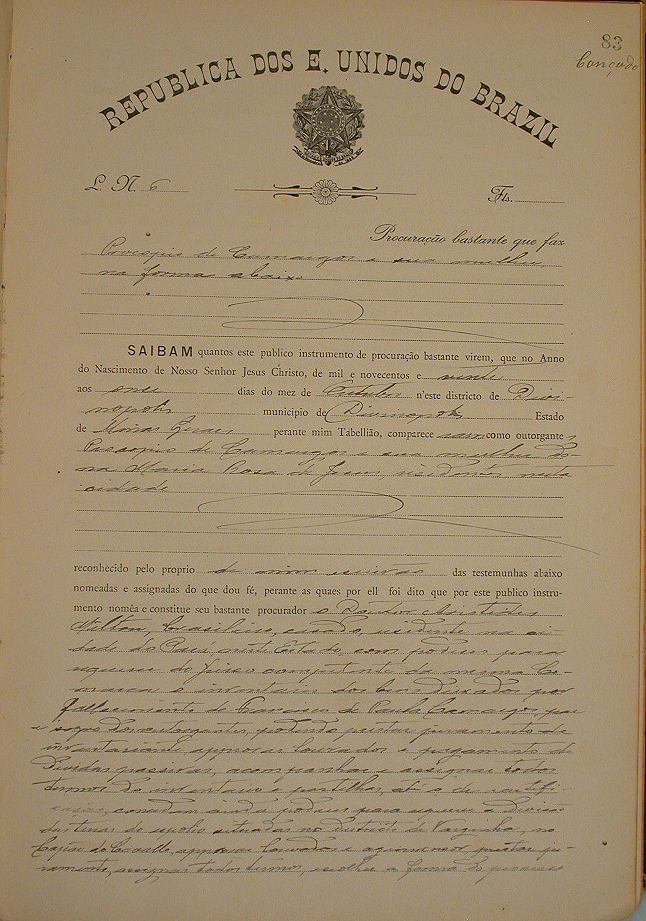 83
REPUBLICA DOS E. UNIDOS DO BRAZIL
L. N. 6 Fls.
Procuração bastante que faz
Procopio de Camargos e sua mulher,
na forma abaixo
SAIBAM quantos este publico instrumento de procuração bastante virem, que no Anno
do Nascimento de Nosso Senhor Jesus Christo, de mil e novecentos e vinte
aos onze dias do mez de Outubro n'este districto de Divi-
nopolis municipio de Divinopolis Estado
de Minas Geraes perante mim Tabellião, comparece ram como outorgantes
Procopio de Camargos e sua mulher Do-
na Maria Rosa de Jesus residentes nesta
cidade
reconhecido pelo proprio de mim das testemunhas abaixo
nomeadas e assignadas do que dou fé, perante as quaes por ell foi dito que por este publico instru-
mento nomêa e constitue seu bastante procurador o Doutor Aristides
Milton, brasileiro, casado, residente na ci-
dade do Pará neste Estado, com poderes para
requerer do Juizo competente da mesma Co-
marca o inventario dos bens deixados por
fallecimento de Francisco de Paula Camargos, pae
e sogro dos outorgantes, podendo prestar juramento de
inventariante, approvar louvados e pagamento de
dividas passivas, acompanhar e assignar todos
termos do inventario e partilhas, até o de
concedem ainda poderes para requerer a divisão
das terras do espolio situadas no Districto de Varginha, no
Capão do Cavallo, approvar louvados e agrimensor, prestar ju-
ramento, assignar todos termos, escolher a forma do processo